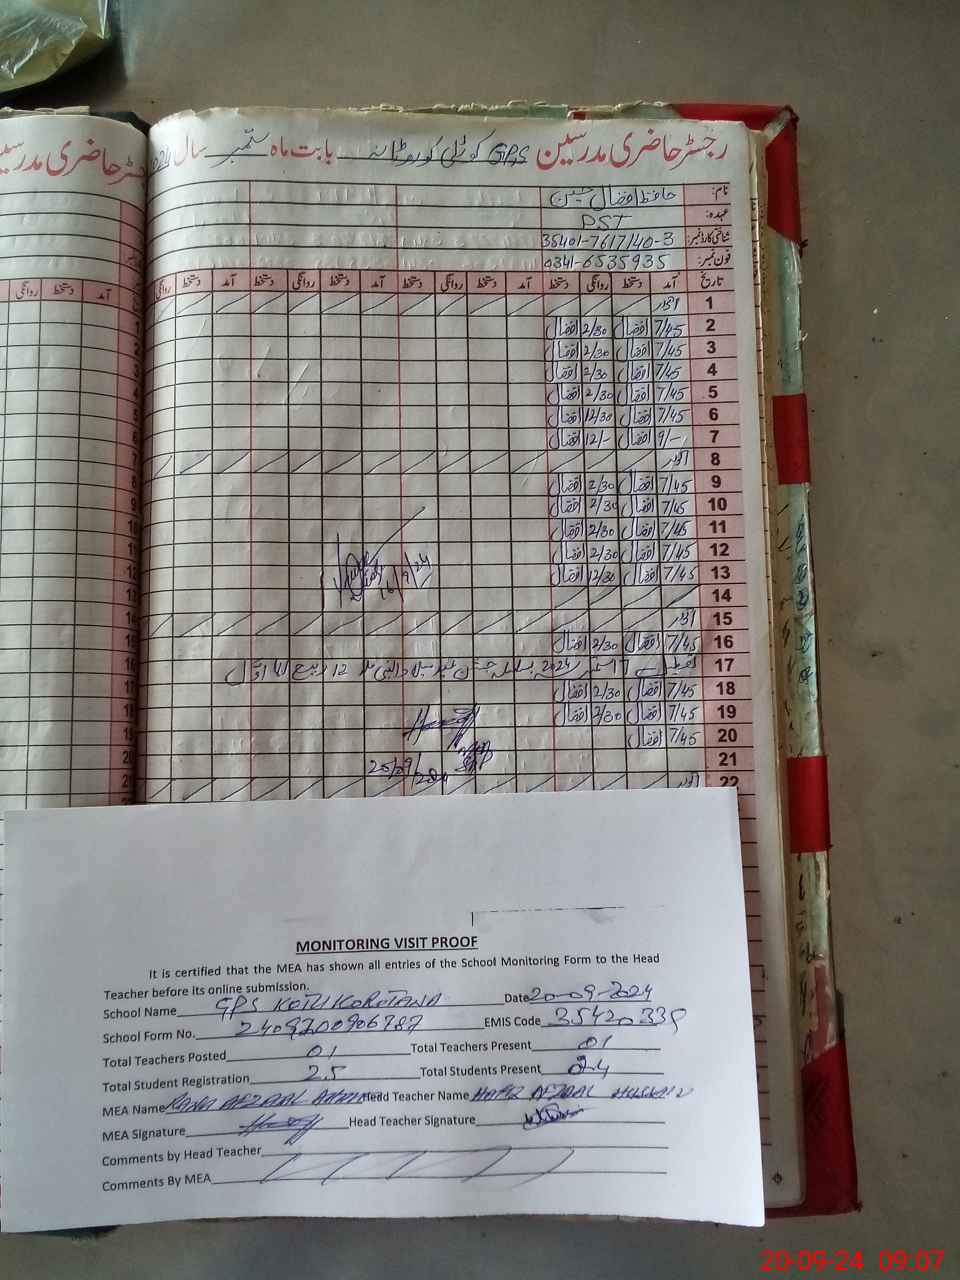 رجسٹر حاضری مدرسین GPS کوٹلی کوروٹانہ بابت ماہ ستمبر سال 2024
نام: حافظ افضال حسین
عہدہ: PST
شناختی کارڈ نمبر: 35401-7617140-3
فون نمبر: 0341-6535935
تاریخ آمد دستخط روانگی دستخط آمد دستخط روانگی دستخط آمد دستخط روانگی دستخط آمد دستخط روانگی
1 اتوار
2 7/45 افضال 2/30 افضال
3 7/45 افضال 2/30 افضال
4 7/45 افضال 2/30 افضال
5 7/45 افضال 2/30 افضال
6 7/45 افضال 12/30 افضال
7 9/- افضال 12/- افضال
8 اتوار
9 7/45 افضال 2/30 افضال
10 7/45 افضال 2/30 افضال
11 7/45 افضال 2/30 افضال
12 7/45 افضال 2/30 افضال
13 7/45 افضال 12/30 افضال
16/9/24
14
15 اتوار
16 7/45 افضال 2/30 افضال
17 17 ستمبر 2024 بسلسلہ جشن عید میلاد النبی 12 ربیع الاول
18 7/45 افضال 2/30 افضال
19 7/45 افضال 2/30 افضال
20 7/45 افضال
21
22 اتوار
MONITORING VISIT PROOF
It is certified that the MEA has shown all entries of the School Monitoring Form to the Head
Teacher before its online submission.
School Name GPS KOTLI KOROTANA Date 20-09-2024
School Form No. 2409200906787 EMIS Code 35420339
Total Teachers Posted 01 Total Teachers Present 01
Total Student Registration 25 Total Students Present 24
MEA Name RANA AFZAAL AHMED Head Teacher Name HAFIZ AFZAAL HUSSAIN
MEA Signature Head Teacher Signature
Comments by Head Teacher
Comments By MEA
20-09-24 09:07